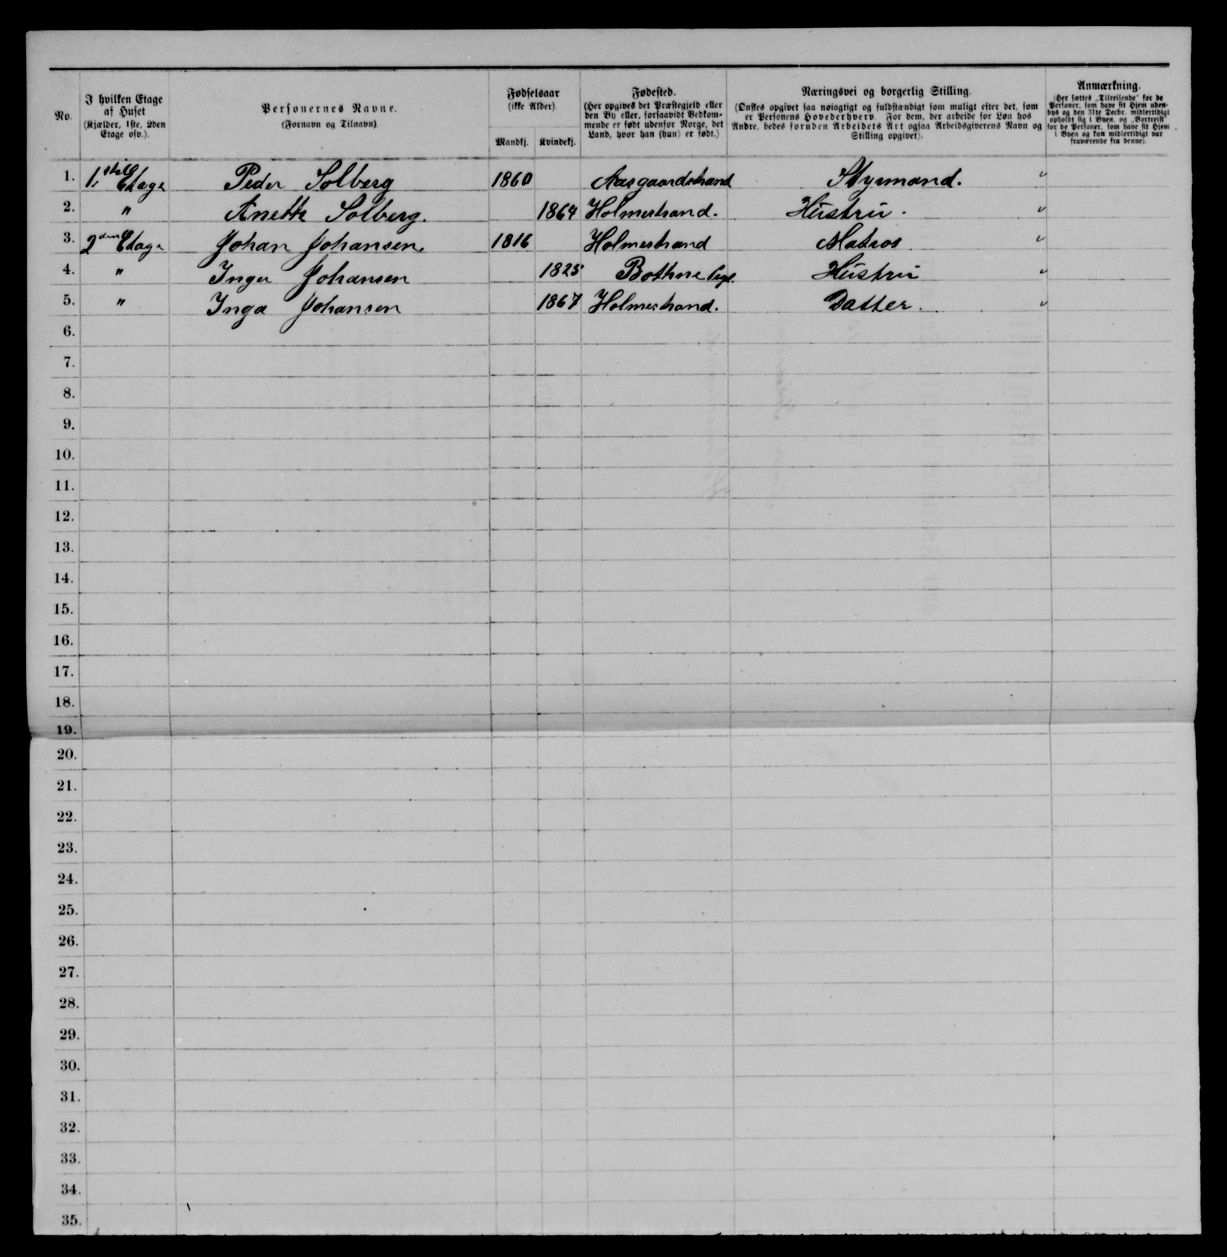 No.
I hvilken Etage af Huset (Kjælder, 1ste, 2den Etage osv.).
Personernes Navne. (Fornavn og Tilnavn)
Fødselsaar (ikke Alder).
Mandkj. Kvindekj.
Fødested. (Her opgives det Præstegjeld eller den By eller, forsaavidt Vedkommende er født udenfor Norge, det Land, hvor han (hun) er født.)
Næringsvei og borgerlig Stilling. (Ønskes opgivet saa nøiagtigt og fuldstændigt som muligt efter det, som er Personens Hovederhverv. For dem, der arbeide for Løn hos Andre, bedes foruden Arbeidets Art ogsaa Arbeidsgiverens Navn og Stilling opgivet).
Anmærkning. (Her sættes „Tilreisende" for de Personer, som have sit Hjem udenbys og den 31te Decbr. midlertidigt opholdt sig i Byen, og „Bortreist" for de Personer, som have sit Hjem i Byen og kun midlertidigt var fraværende fra denne).
1. 1ste Etage Peder Solberg 1860 Aasgaardstrand Styrmand. "
2. " Anette Solberg. 1864 Holmestrand. Hustru. "
3. 2den Etage Johan Johansen. 1816 Holmestrand Matros "
4. " Inger Johansen 1825 Bothne Hustru "
5. " Inga Johansen 1867 Holmestrand. Datter. "
6.
7.
8.
9.
10.
11.
12.
13.
14.
15.
16.
17.
18.
19.
20.
21.
22.
23.
24.
25.
26.
27.
28.
29.
30.
31.
32.
33.
34.
35.